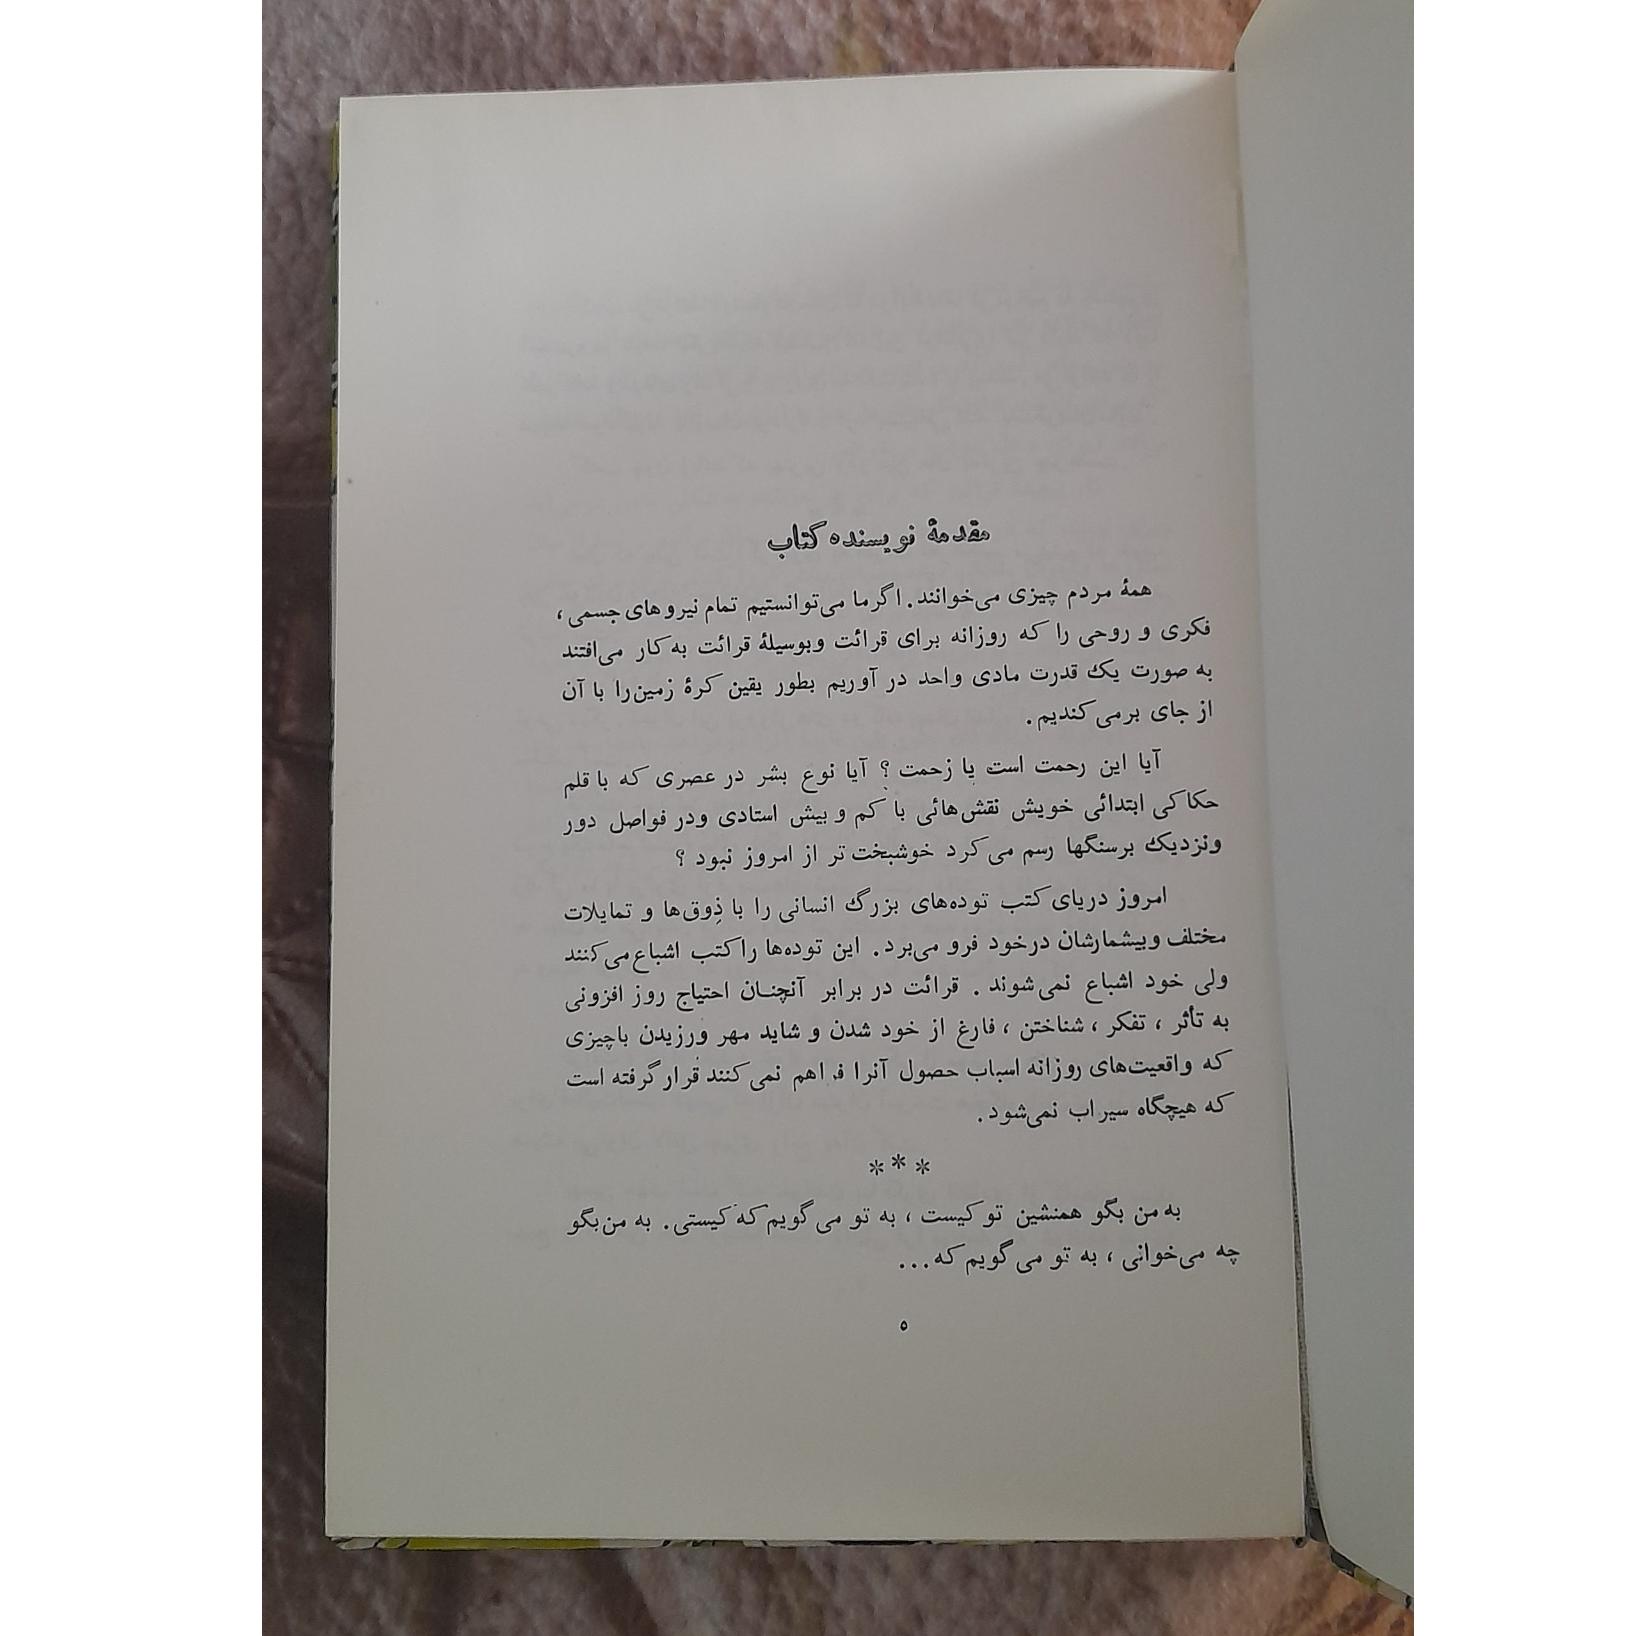 مقدمهٔ نویسنده کتاب
همهٔ مردم چیزی می‌خوانند. اگرما می‌توانستیم تمام نیروهای جسمی،
فکری و روحی را که روزانه برای قرائت وبوسیلهٔ قرائت به کار می‌افتند
به صورت یک قدرت مادی واحد در آوریم بطور یقین کرهٔ زمین‌را با آن
از جای برمی‌کندیم.
آیا این رحمت است یا زحمت؟ آیا نوع بشر در عصری که با قلم
حکاکی ابتدائی خویش نقش‌هائی با کم و بیش استادی ودر فواصل دور
ونزدیک برسنگها رسم می‌کرد خوشبخت‌تر از امروز نبود؟
امروز دریای کتب توده‌های بزرگ انسانی را با ذوق‌ها و تمایلات
مختلف وبیشمارشان درخود فرو می‌برد. این توده‌ها راکتب اشباع می‌کنند
ولی خود اشباع نمی‌شوند. قرائت در برابر آنچنان احتیاج روز افزونی
به تأثر، تفکر، شناختن، فارغ از خود شدن و شاید مهر ورزیدن باچیزی
که واقعیت‌های روزانه اسباب حصول آنرا فراهم نمی‌کنند قرار گرفته است
که هیچگاه سیراب نمی‌شود.
***
به من بگو همنشین تو کیست، به تو می‌گویم که کیستی. به من‌بگو
چه می‌خوانی، به تو می‌گویم که...
۵